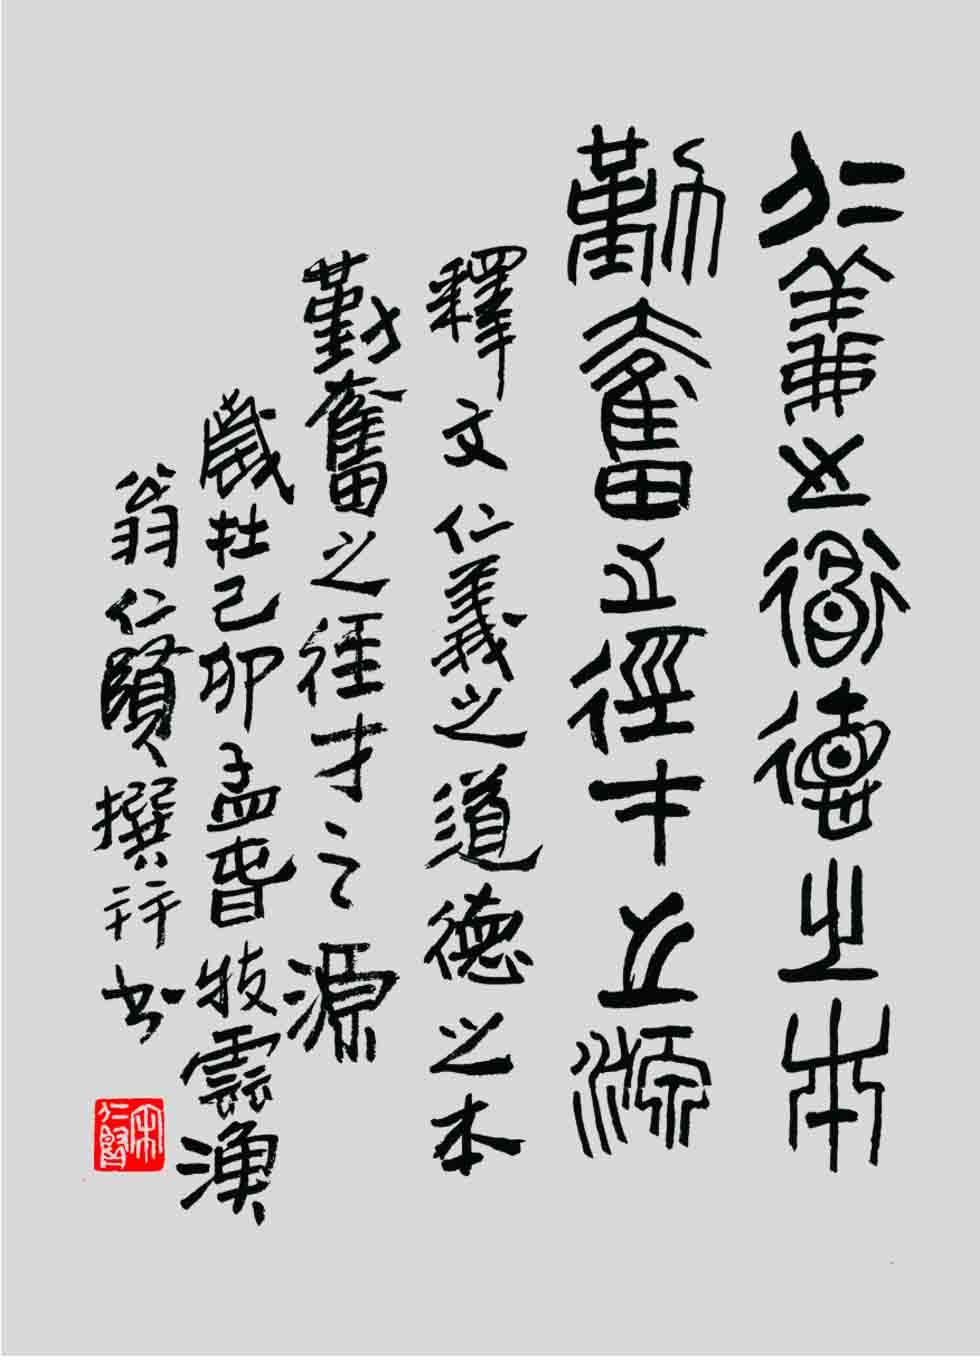 仁義之道德之本
勤奮之徑才之源
釋文仁義之道德之本
勤奮之徑才之源
歲在己卯孟春牧雲漁
翁仁賢撰并書